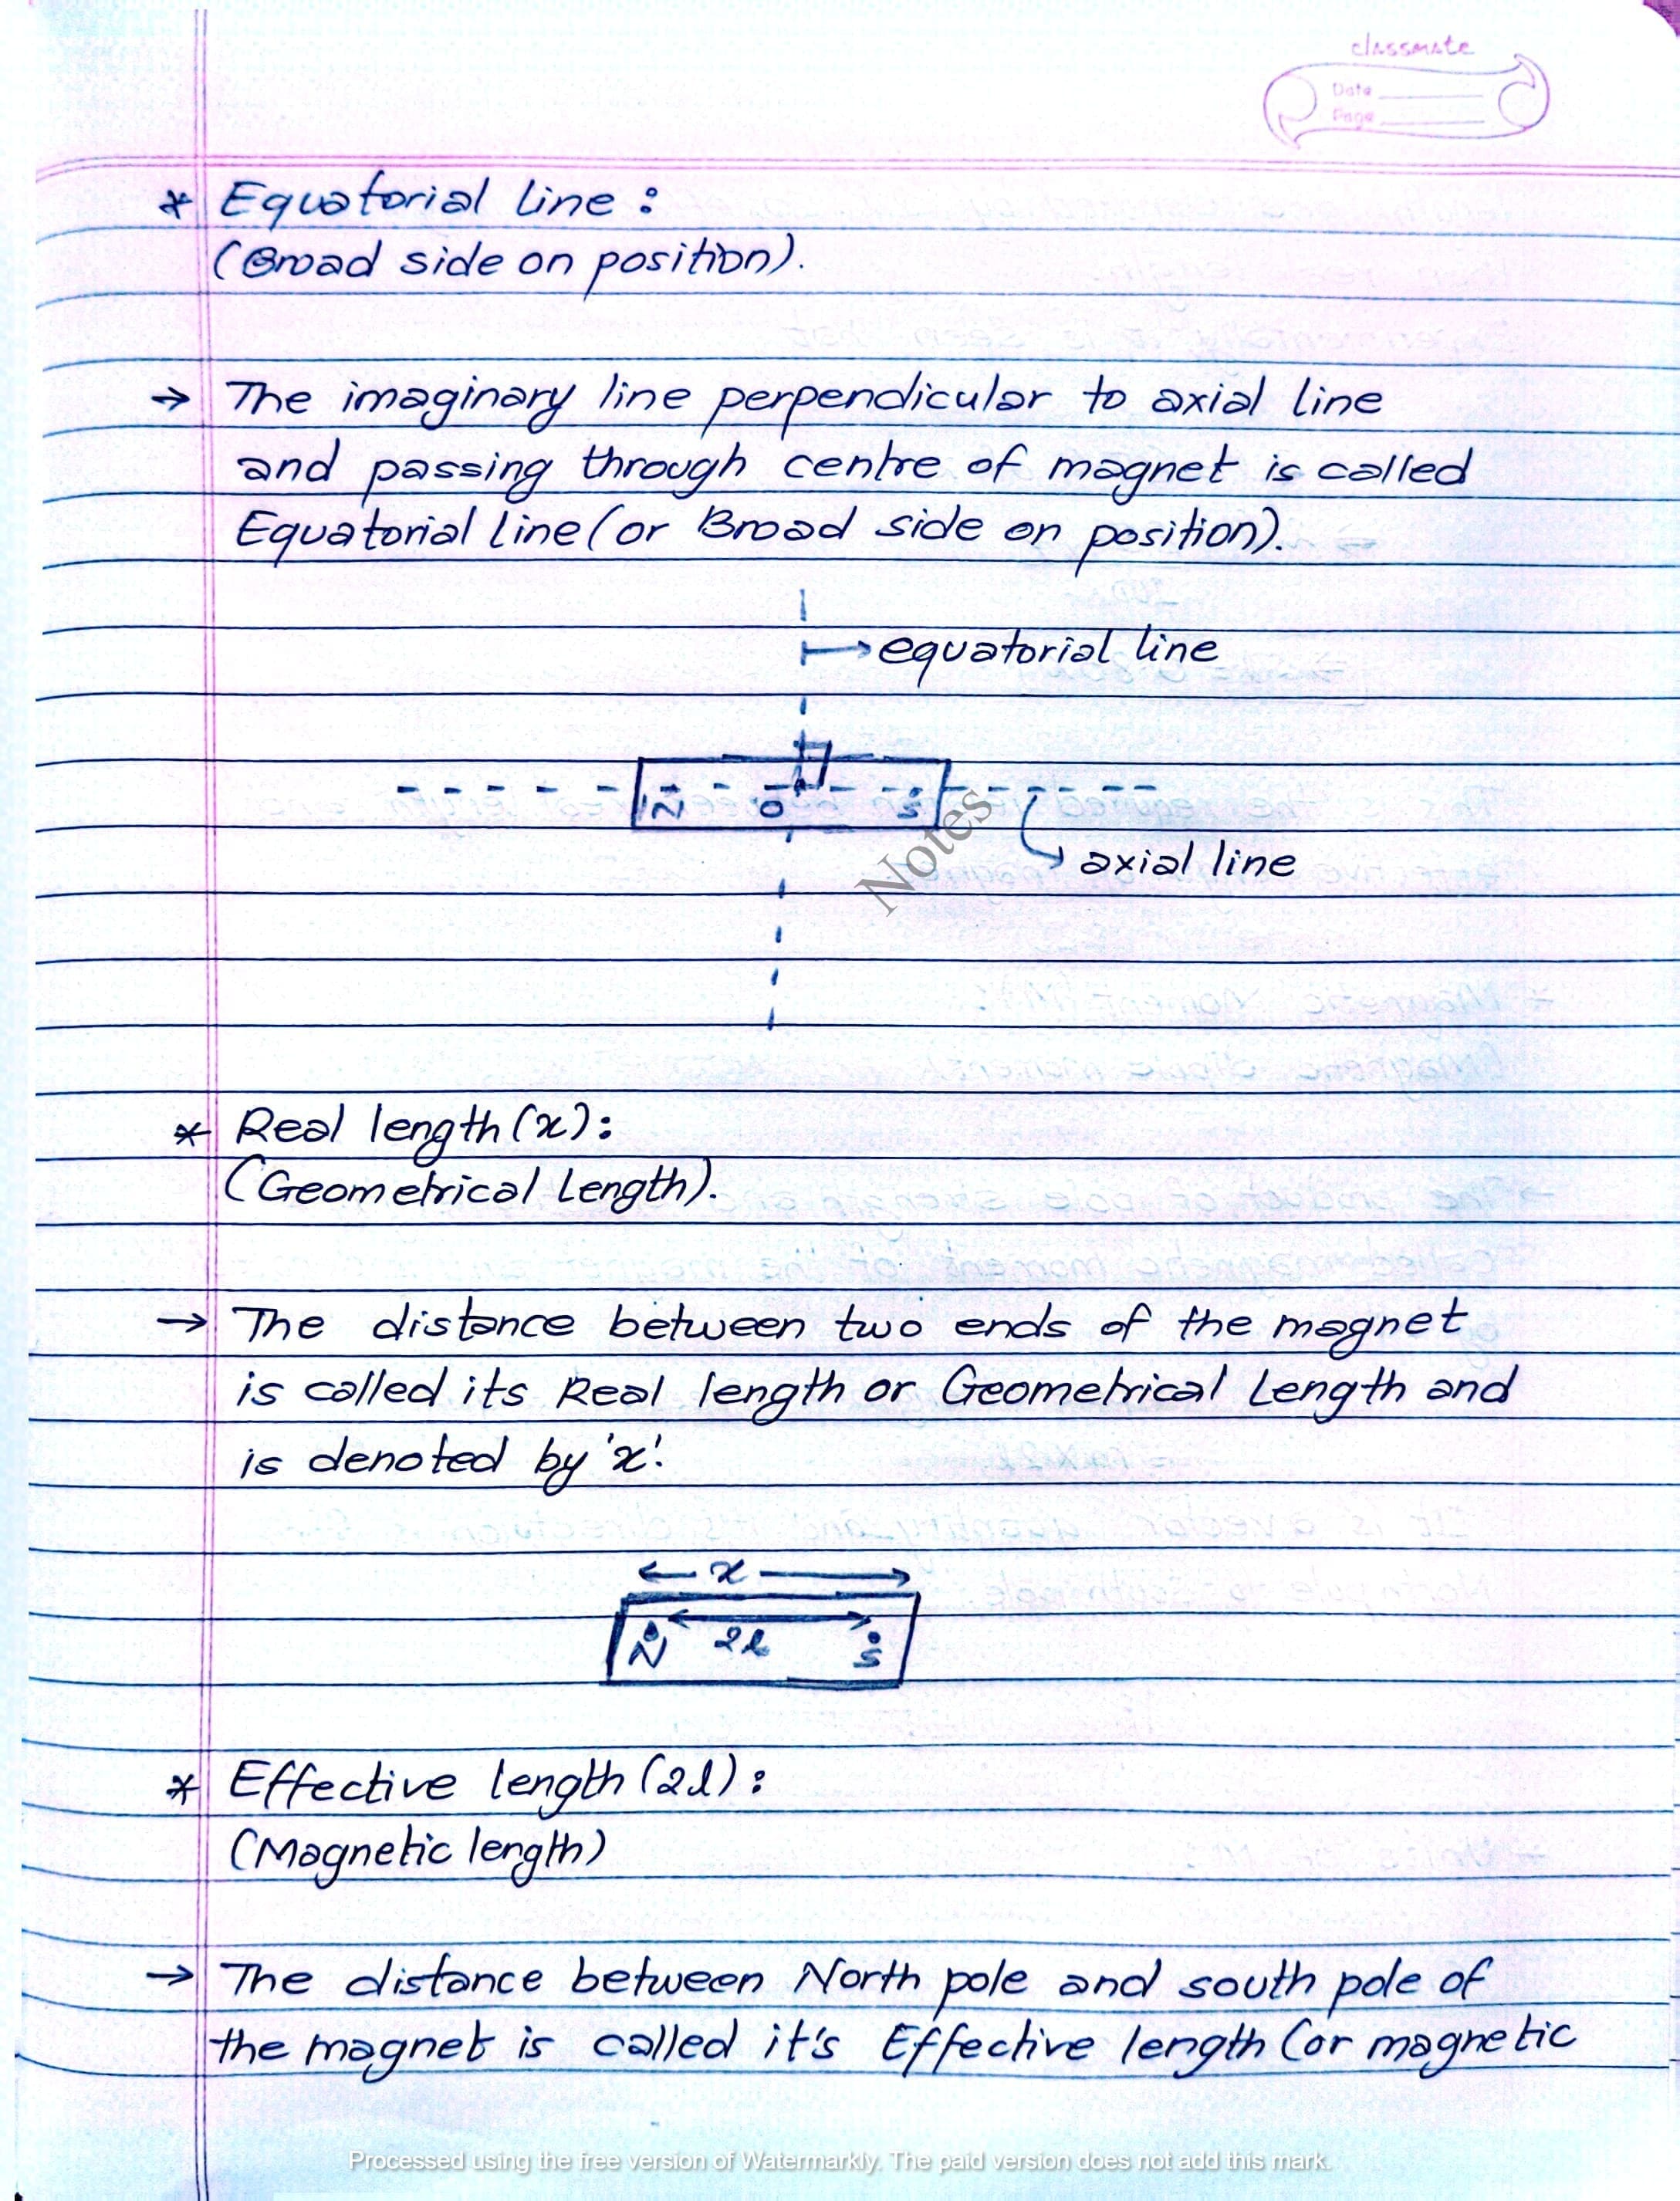 classmate
Date
Page
* Equatorial line :
(Broad side on position).
→ The imaginary line perpendicular to axial line
and passing through centre of magnet is called
Equatorial line (or Broad side on position).
→ equatorial line
N O S
axial line
Notes
* Real length (x) :
(Geometrical Length).
→ The distance between two ends of the magnet
is called its Real length or Geometrical Length and
is denoted by 'x'.
x
N 2l S
* Effective length (2l) :
(Magnetic length)
→ The distance between North pole and south pole of
the magnet is called it's Effective length (or magnetic
Processed using the free version of Watermarkly. The paid version does not add this mark.